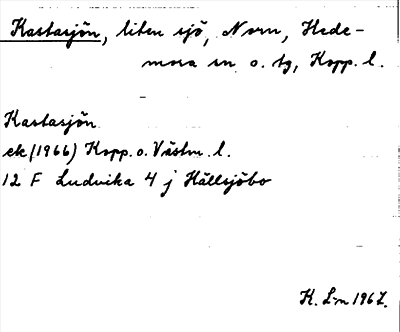 Kastasjön, liten sjö, Norn, Hede-
mora sn o. tg, Kopp. l.
Kastasjön
ek (1966) Kopp. o. Västm. l.
12 F Ludvika 4 j Hällsjöbo
K. L-n 1967.